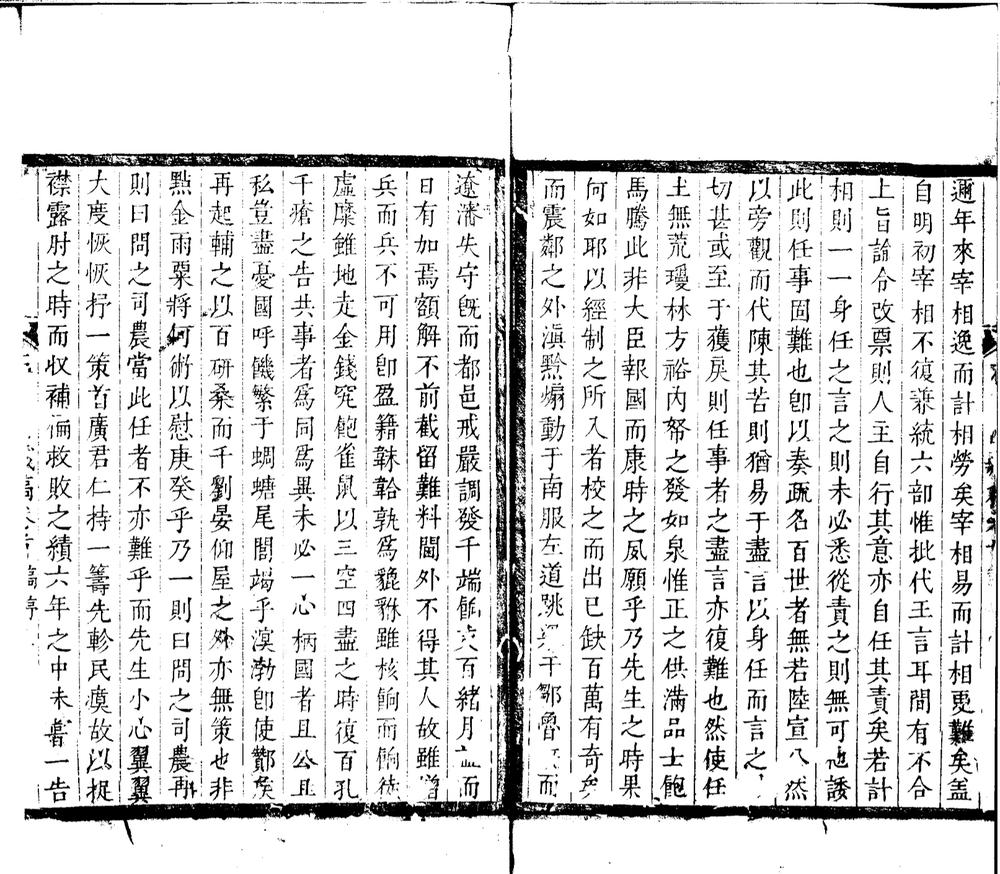 邇年來宰相逸而計相勞矣宰相易而計相更難矣盖
自明初宰相不復兼統六部惟批代王言耳間有不合
上旨諭令改票則人主自行其意亦自任其責矣若計
相則一一身任之言之則未必悉從責之則無可他諉
此則任事固難也卽以奏疏名百世者無若陸宣公然
以旁觀而代陳其苦則猶易于盡言以身任而言之
切甚或至于獲戾則任事者之盡言亦復難也然使任
土無荒瓊林方裕內帑之發如泉惟正之供滿品士飽
馬騰此非大臣報國而康時之夙願乎乃先生之時果
何如耶以經制之所入者校之而出已缺百萬有奇矣
而震鄰之外滇黔煽動于南服左道跳梁于鄒魯 而
遼瀋失守旣而都邑戒嚴調發千端餉 百緒月 而
日有加焉額解不前截留難料閫外不得其人故雖增
兵而兵不可用卽盈籍韎韐孰爲貔貅雖核餉而餉徒
虛糜雖地走金錢究飽雀鼠以三空四盡之時復百孔
千瘡之告共事者爲同爲異未必一心柄國者且公且
私豈盡憂國呼饑繁于蜩螗尾閭竭乎溟渤卽使酇矦
再起輔之以百研桑而千劉晏仰屋之外亦無策也非
點金雨粟將何術以慰庚癸乎乃一則曰問之司農再
則曰問之司農當此任者不亦難乎而先生小心翼翼
大度恢恢抒一策首廣君仁持一籌先軫民瘼故以捉
襟露肘之時而收補偏救敗之績六年之中未嘗一告